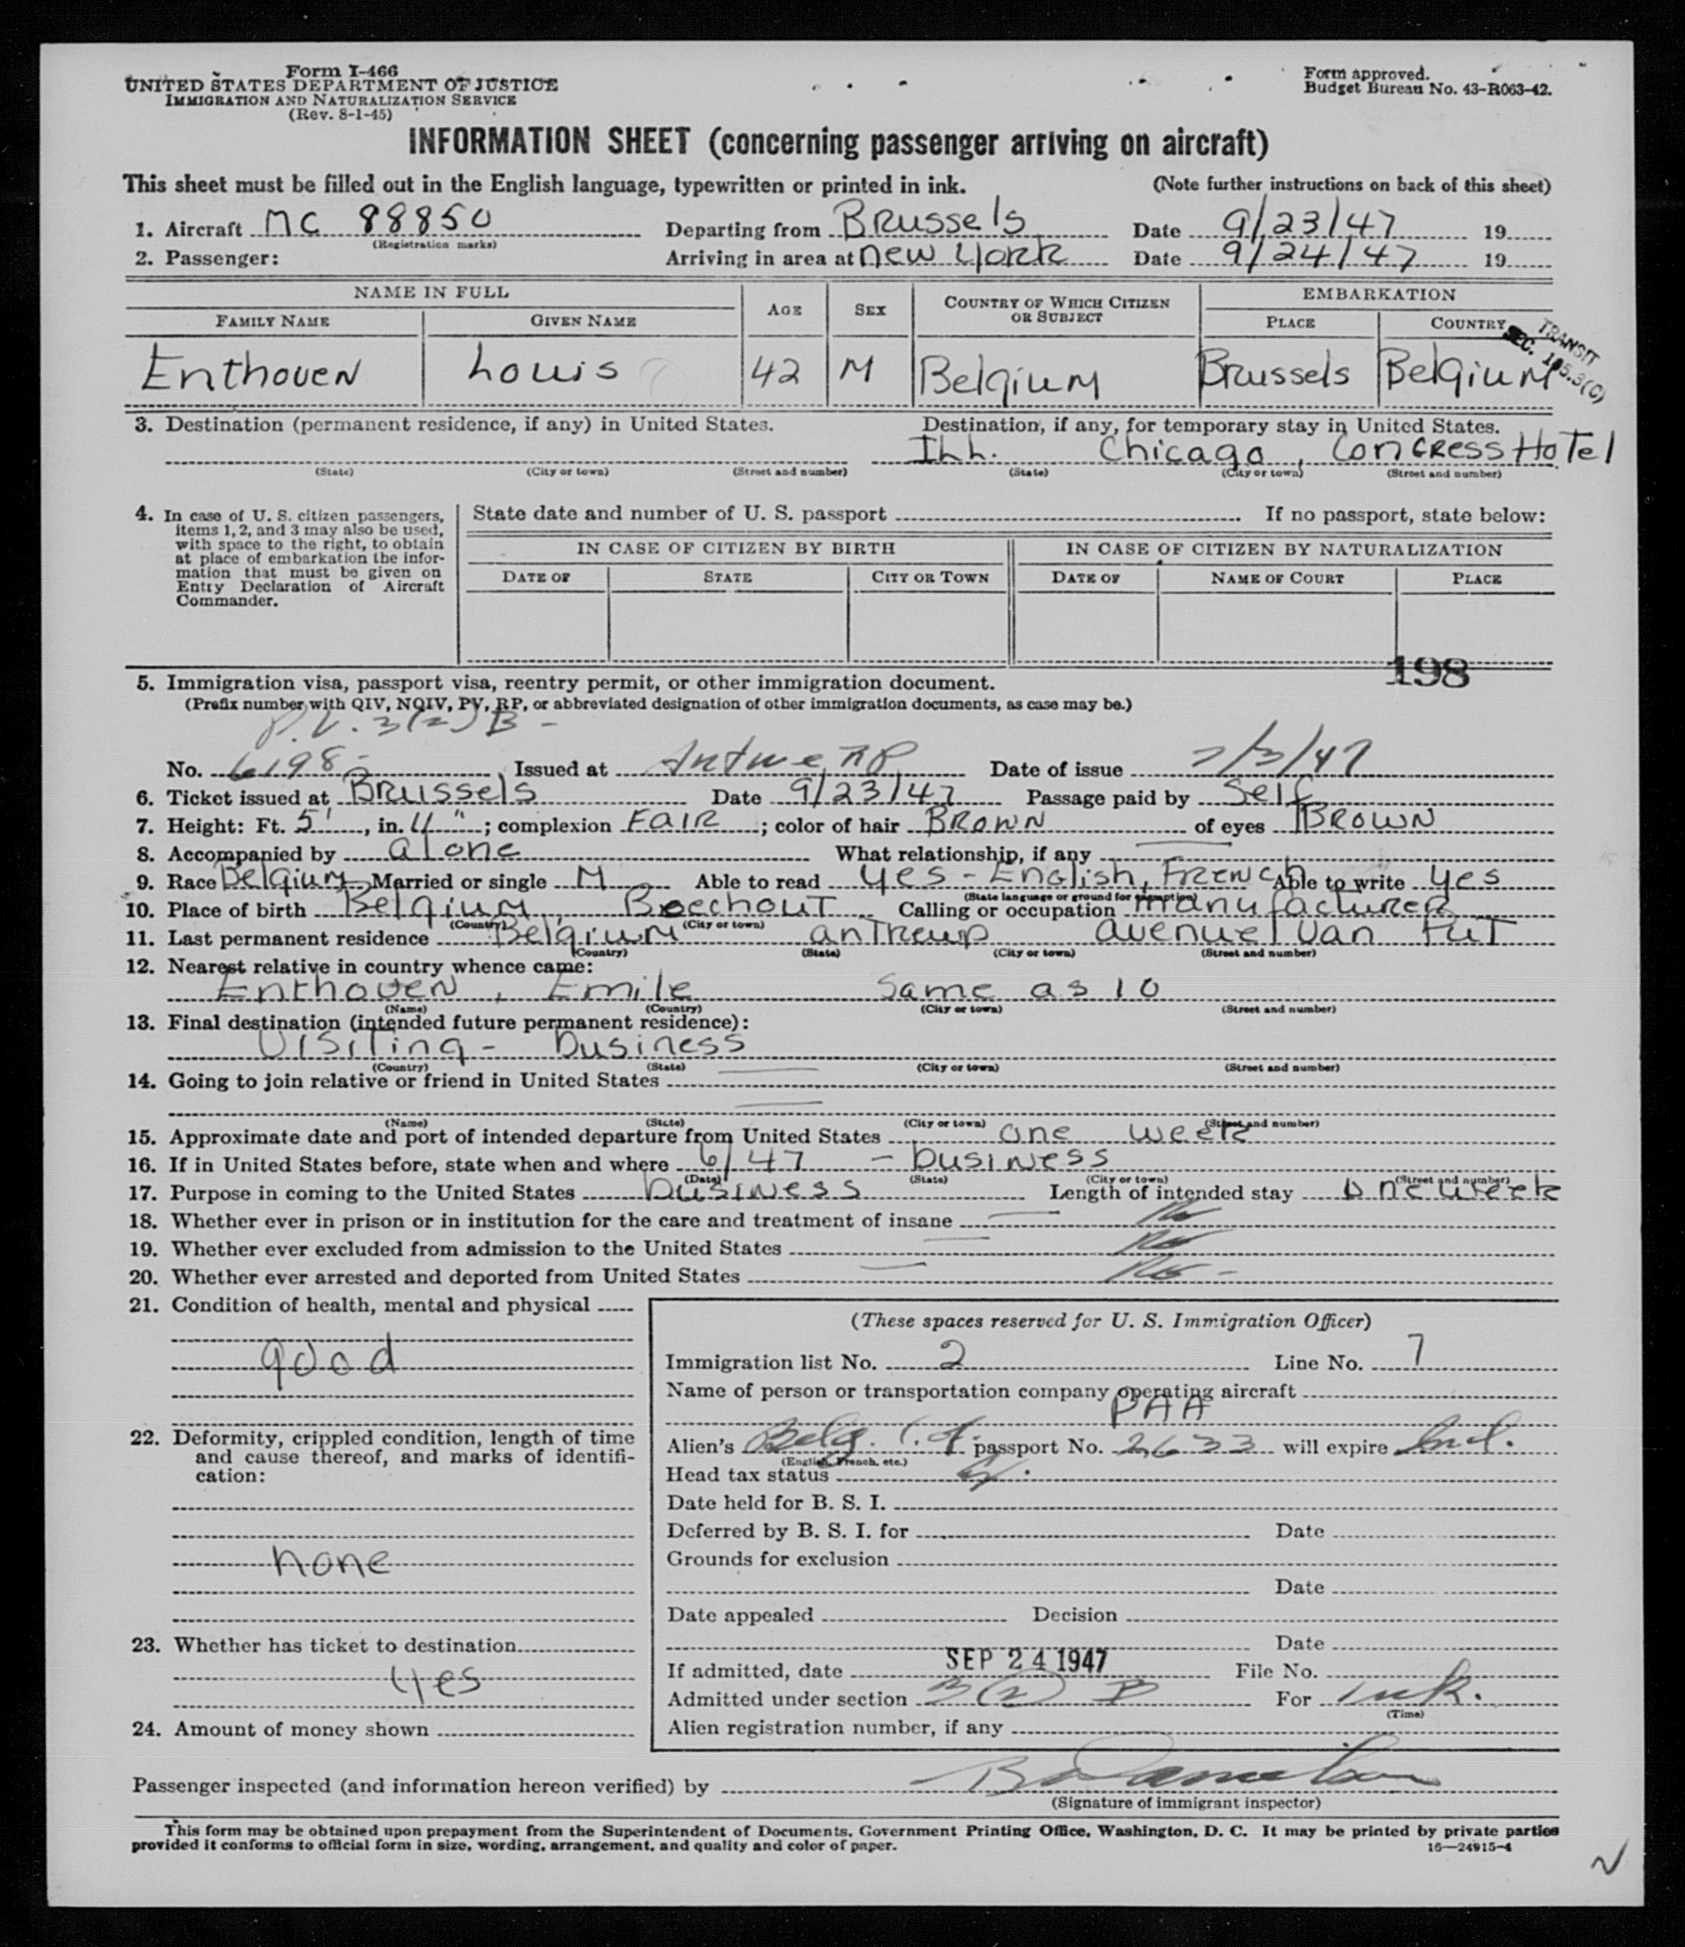 Form I-466
UNITED STATES DEPARTMENT OF JUSTICE
IMMIGRATION AND NATURALIZATION SERVICE
(Rev. 8-1-45)
Form approved.
Budget Bureau No. 43-R063-42.
INFORMATION SHEET (concerning passenger arriving on aircraft)
This sheet must be filled out in the English language, typewritten or printed in ink. (Note further instructions on back of this sheet)
1. Aircraft NC 88850 Departing from Brussels Date 9/23/47 19
(Registration marks)
2. Passenger: Arriving in area at New York Date 9/24/47 19
NAME IN FULL AGE SEX COUNTRY OF WHICH CITIZEN OR SUBJECT EMBARKATION
FAMILY NAME GIVEN NAME PLACE COUNTRY
TRANSIT
SEC. 105.3(C)
Enthoven Louis 42 M Belgium Brussels Belgium
3. Destination (permanent residence, if any) in United States. Destination, if any, for temporary stay in United States.
Ill. Chicago, Congress Hotel
(State) (City or town) (Street and number) (State) (City or town) (Street and number)
4. In case of U. S. citizen passengers, items 1, 2, and 3 may also be used, with space to the right, to obtain at place of embarkation the information that must be given on Entry Declaration of Aircraft Commander.
State date and number of U. S. passport If no passport, state below:
IN CASE OF CITIZEN BY BIRTH IN CASE OF CITIZEN BY NATURALIZATION
DATE OF STATE CITY OR TOWN DATE OF NAME OF COURT PLACE
198
5. Immigration visa, passport visa, reentry permit, or other immigration document.
(Prefix number with QIV, NQIV, PV, RP, or abbreviated designation of other immigration documents, as case may be.)
P.V. 3(2) B -
No. 6198- Issued at Antwerp Date of issue 7/3/47
6. Ticket issued at Brussels Date 9/23/47 Passage paid by Self
7. Height: Ft. 5', in. 4"; complexion Fair; color of hair Brown of eyes Brown
8. Accompanied by alone What relationship, if any
9. Race Belgium Married or single M Able to read yes - English, French Able to write yes
(State language or ground for exemption)
10. Place of birth Belgium, Boechout Calling or occupation manufacturer
(Country) (City or town)
11. Last permanent residence Belgium antwerp avenue Van Put
(Country) (State) (City or town) (Street and number)
12. Nearest relative in country whence came:
Enthoven, Emile Same as 10
(Name) (Country) (City or town) (Street and number)
13. Final destination (intended future permanent residence):
Visiting - business
(Country) (State) (City or town) (Street and number)
14. Going to join relative or friend in United States
(Name) (State) (City or town) (Street and number)
15. Approximate date and port of intended departure from United States one week
16. If in United States before, state when and where 6/47 - business
(Date) (State) (City or town) (Street and number)
17. Purpose in coming to the United States business Length of intended stay one week
18. Whether ever in prison or in institution for the care and treatment of insane No
19. Whether ever excluded from admission to the United States No
20. Whether ever arrested and deported from United States No -
21. Condition of health, mental and physical
good
22. Deformity, crippled condition, length of time and cause thereof, and marks of identification:
none
23. Whether has ticket to destination
yes
24. Amount of money shown
(These spaces reserved for U. S. Immigration Officer)
Immigration list No. 2 Line No. 7
Name of person or transportation company operating aircraft
PAA
Alien's Belg. passport No. 2633 will expire
(English, French, etc.)
Head tax status
Date held for B. S. I.
Deferred by B. S. I. for Date
Grounds for exclusion
Date
Date appealed Decision
Date
If admitted, date SEP 24 1947 File No.
Admitted under section 3(2) B For 1 wk.
(Time)
Alien registration number, if any
Passenger inspected (and information hereon verified) by
(Signature of immigrant inspector)
This form may be obtained upon prepayment from the Superintendent of Documents, Government Printing Office, Washington, D. C. It may be printed by private parties
provided it conforms to official form in size, wording, arrangement, and quality and color of paper. 16—24915-4